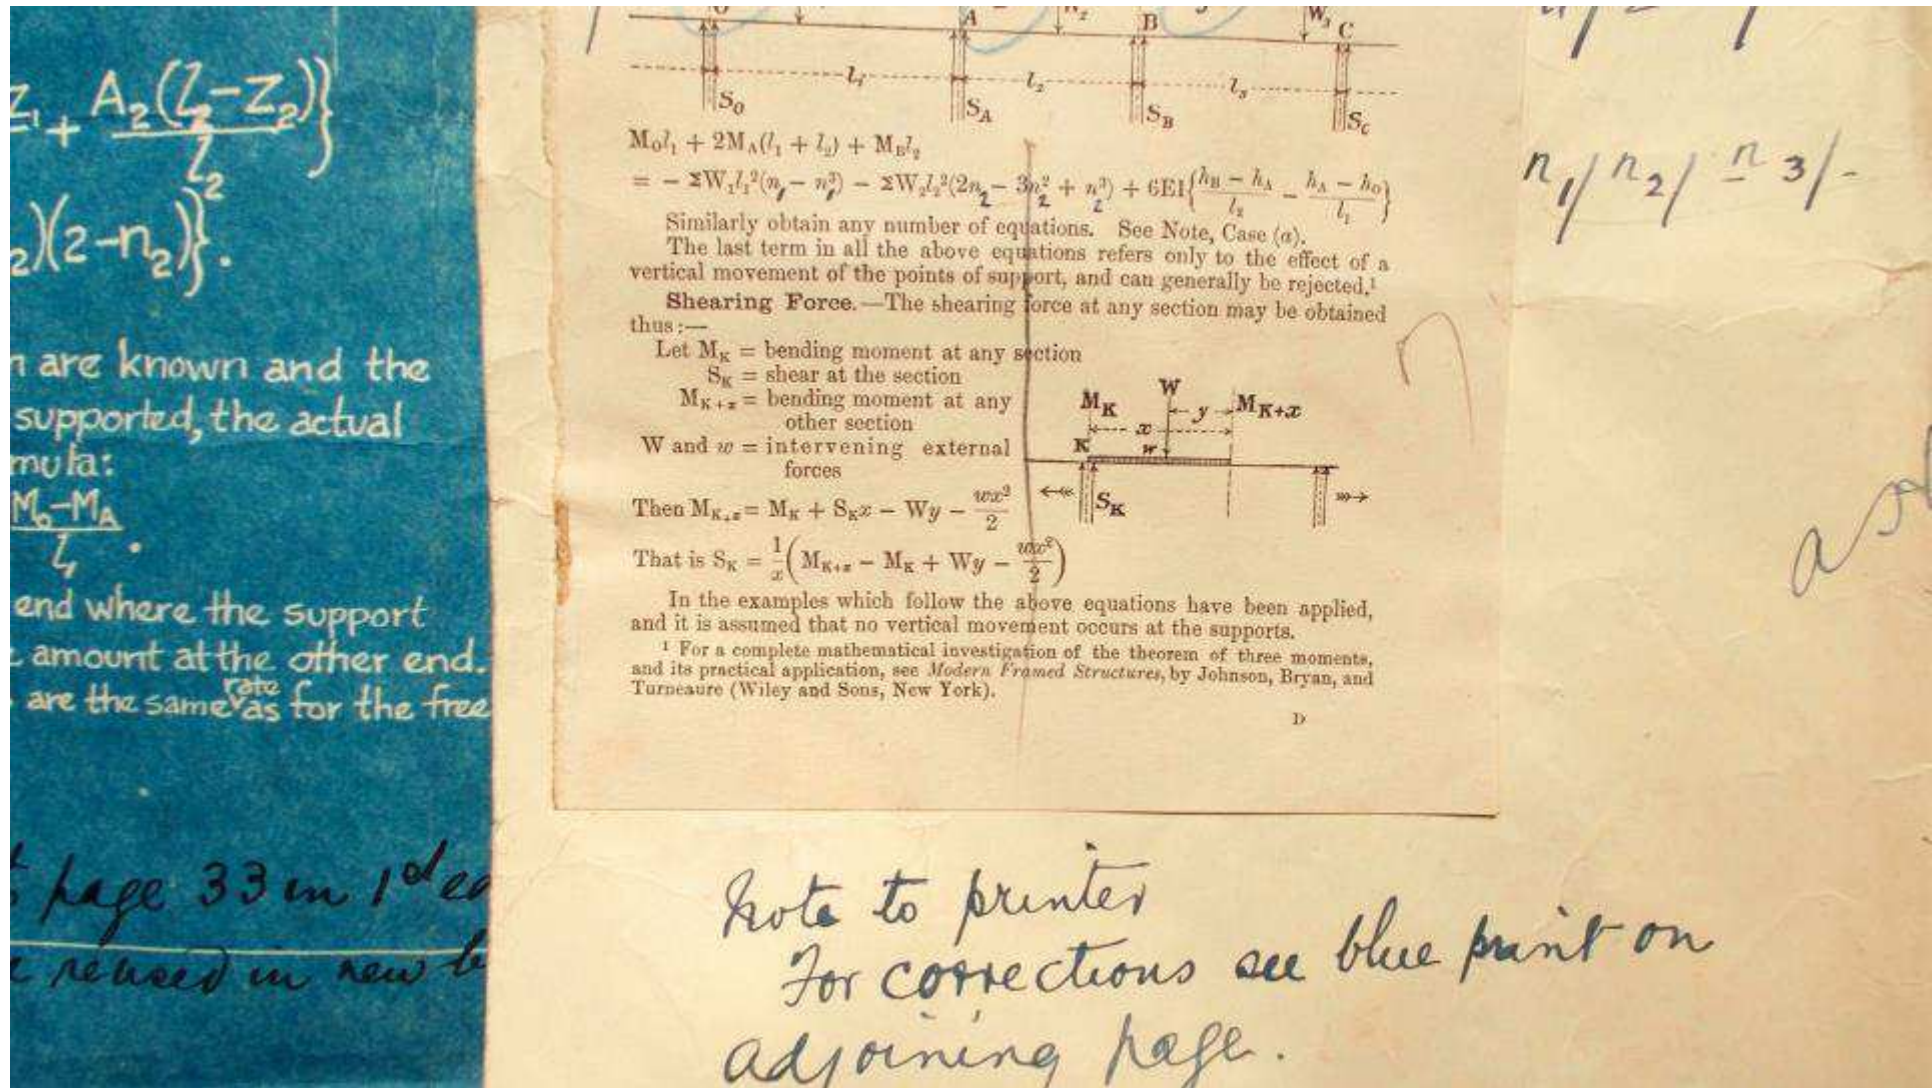 Z₁ + A₂(l₂-Z₂)}
l₂
₂)(2-n₂)}.
are known and the
supported, the actual
mula:
M₀-M_A
l₁.
end where the support
amount at the other end.
rate
are the same as for the free
page 33 in 1st
in new
A B W₃ C
l₁ l₂ l₃
S_O S_A S_B S_C
M₀l₁ + 2M_A(l₁ + l₂) + M_Bl₂
= - ΣW₁l₁²(n₁ - n₁³) - ΣW₂l₂²(2n₂ - 3n₂² + n₂³) + 6EI{(h_B - h_A)/l₂ - (h_A - h_O)/l₁}
Similarly obtain any number of equations. See Note, Case (a).
The last term in all the above equations refers only to the effect of a
vertical movement of the points of support, and can generally be rejected.¹
Shearing Force.—The shearing force at any section may be obtained
thus:—
Let M_K = bending moment at any section
S_K = shear at the section
M_{K+x} = bending moment at any
other section
W and w = intervening external
forces
Then M_{K+x} = M_K + S_Kx - Wy - wx²/2
That is S_K = 1/x(M_{K+x} - M_K + Wy - wx²/2)
W
M_K y M_{K+x}
x
K w
S_K
In the examples which follow the above equations have been applied,
and it is assumed that no vertical movement occurs at the supports.
¹ For a complete mathematical investigation of the theorem of three moments,
and its practical application, see Modern Framed Structures, by Johnson, Bryan, and
Turneaure (Wiley and Sons, New York).
D
n₁/ n₂/ n 3/-
Note to printer
For corrections see blue print on
adjoining page.